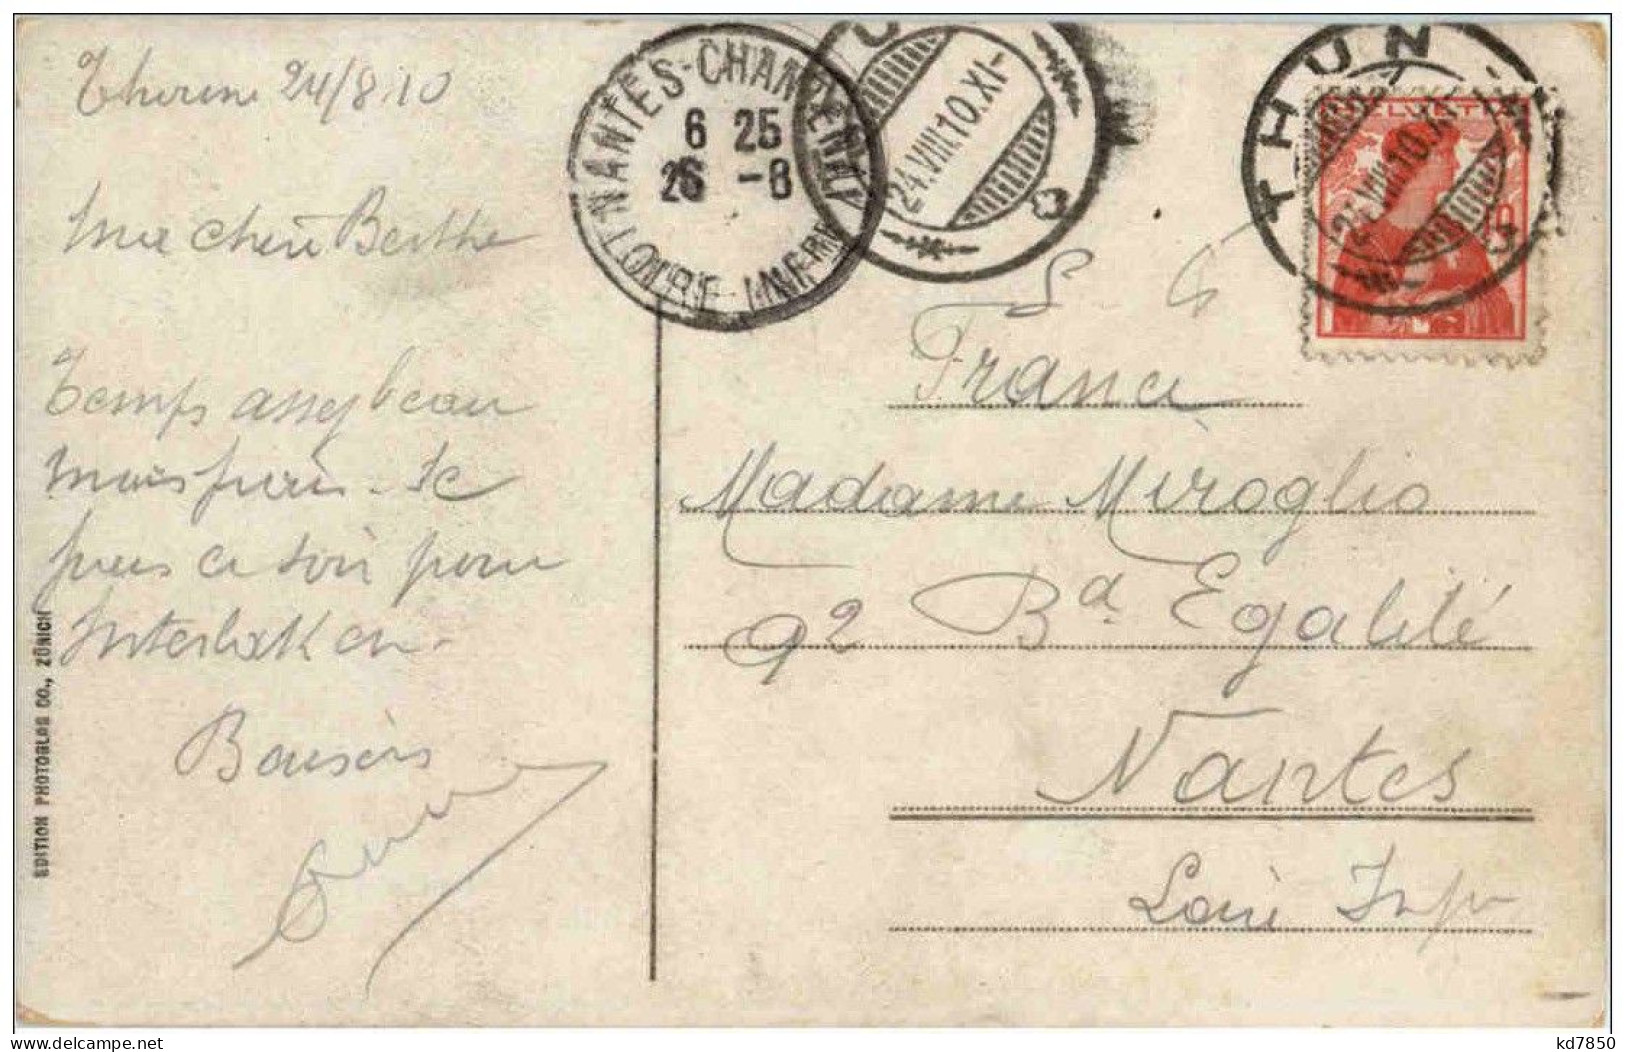 24/8.10
Ma chère Berthe
Temps assez beau
mais frais. Je
pars ce soir pour
Interlaken.
Baisers
EDITION PHOTOGLOB CO., ZÜRICH
NANTES-CHANTENAY
6 25
26 -8
LOIRE-INFRE
24.VIII.10.XI-
THUN
HELVETIA
10
24.VIII.10.XI-
France
Madame Miroglio
92 Bd. Egalité
Nantes
Loire Infre
delcampe.net
kd7850